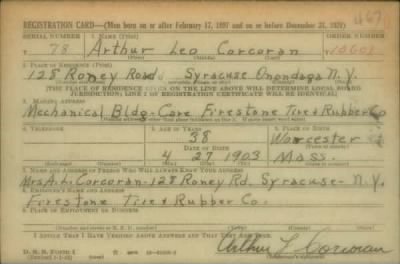 REGISTRATION CARD—(Men born on or after February 17, 1897 and on or before December 31, 1921)
SERIAL NUMBER 1. NAME (Print) ORDER NUMBER
78 Arthur Leo Corcoran
(First) (Middle) (Last)
2. PLACE OF RESIDENCE (Print)
128 Roney Road Syracuse Onondaga N.Y.
[THE PLACE OF RESIDENCE GIVEN ON THE LINE ABOVE WILL DETERMINE LOCAL BOARD
JURISDICTION; LINE 2 OF REGISTRATION CERTIFICATE WILL BE IDENTICAL]
3. MAILING ADDRESS
Mechanical Bldg-Care Firestone Tire & Rubber Co
4. TELEPHONE 5. AGE IN YEARS 6. PLACE OF BIRTH
38 Worcester
DATE OF BIRTH
4 27 1903 Mass.
7. NAME AND ADDRESS OF PERSON WHO WILL ALWAYS KNOW YOUR ADDRESS
Mrs A.L. Corcoran-128 Roney Rd. Syracuse- N.Y.
8. EMPLOYER'S NAME AND ADDRESS
Firestone Tire & Rubber Co.
9. PLACE OF EMPLOYMENT OR BUSINESS
I AFFIRM THAT I HAVE VERIFIED ABOVE ANSWERS AND THAT THEY ARE TRUE.
D. S. S. FORM 1
Arthur L Corcoran